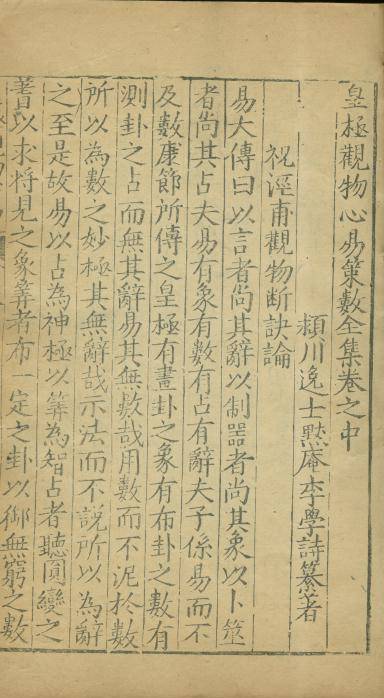 皇極觀物心易筞數全集卷之中
潁川逸士默庵李學詩纂著
祝涇甫觀物断訣論
易大傳曰以言者尚其辭以制噐者尚其象以卜筮
者尚其占夫易有象有數有占有辭夫子係易而不
及數康節所傳之皇極有畫卦之象有布卦之數有
測卦之占而無其辭易其無數哉用數而不泥扵數
所以為數之妙極其無辭哉示法而不說所以為辭
之至是故易以占為神極以筭為智占者聽圓變之
蓍以求将見之象筭者布一定之卦以御無窮之數